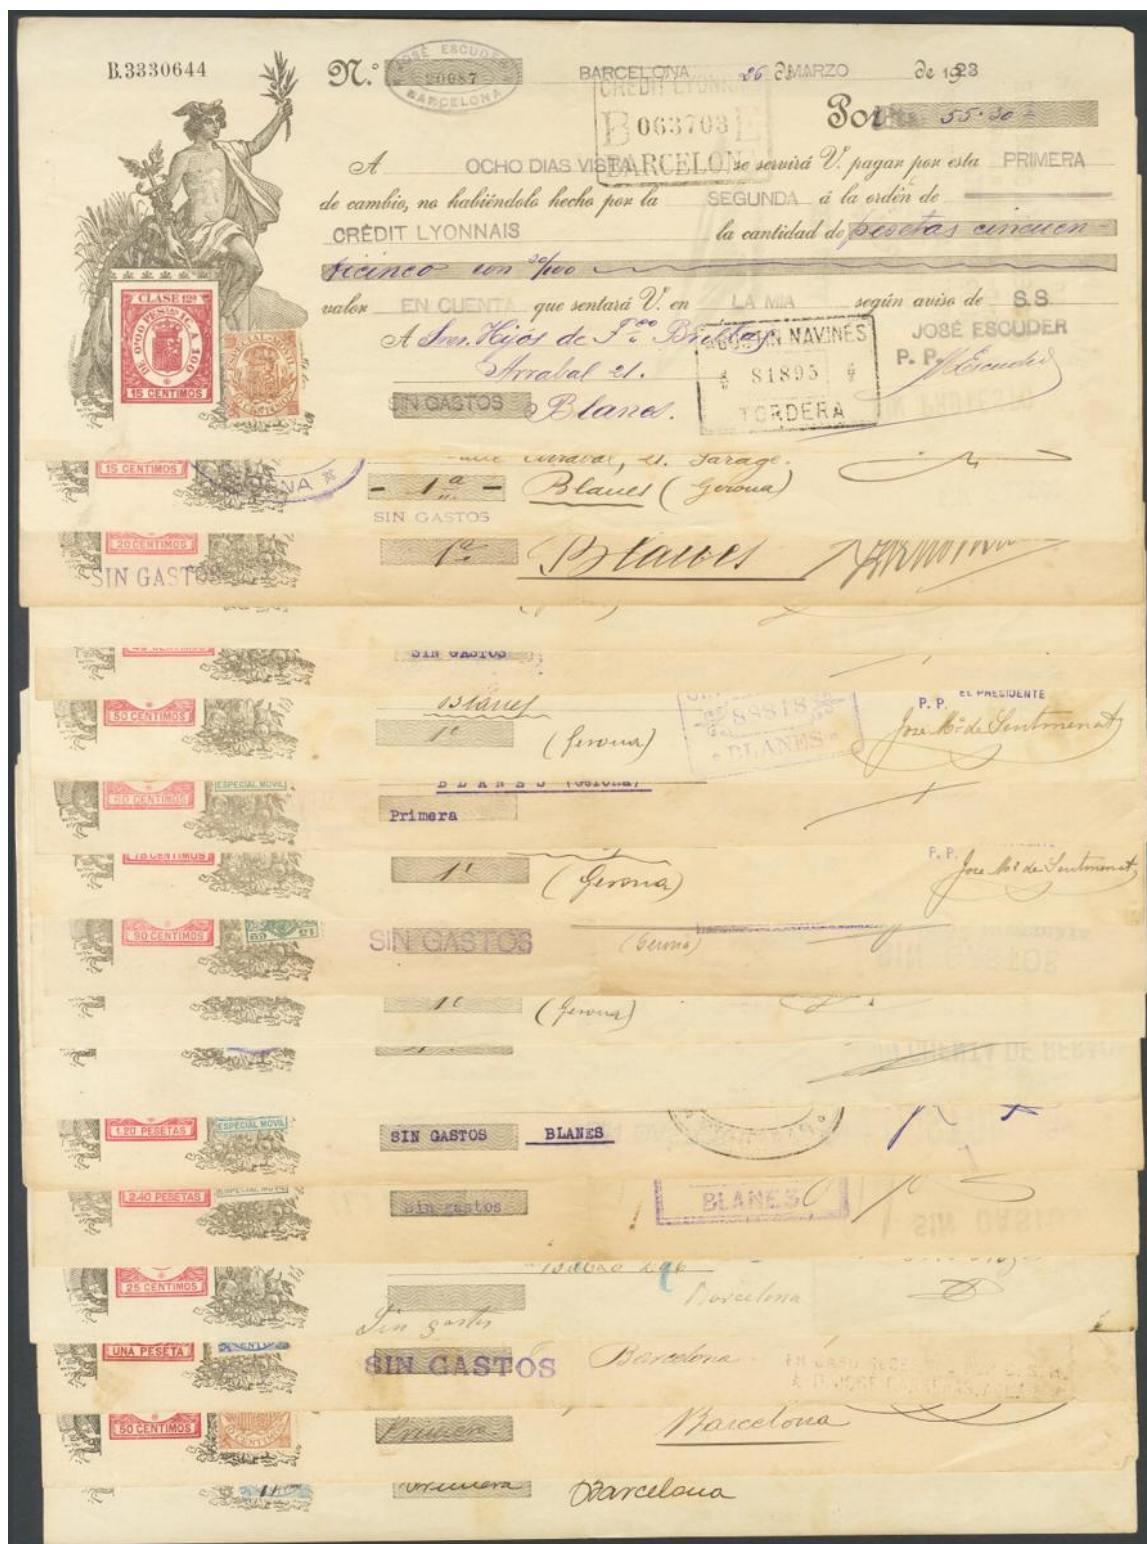 B.3330644
N.º 20687
JOSÉ ESCUDER
BARCELONA
BARCELONA 26 de MARZO de 1923
CRÉDIT LYONNAIS
B 063703 E
BARCELONA
Por 55·30
A OCHO DIAS VISTA se servirá V. pagar por esta PRIMERA
de cambio, no habiéndolo hecho por la SEGUNDA á la orden de
CRÉDIT LYONNAIS la cantidad de pesetas cincuen-
ticinco con 30/100
valor EN CUENTA que sentará V. en LA MIA según aviso de S.S.
CLASE 12ª
15 CENTIMOS
A Sres. Hijos de
Arrabal 21.
SIN GASTOS Blanes.
AGUSTIN NAVINÉS
81895
TORDERA
JOSÉ ESCUDER
P. P.
15 CENTIMOS
Arrabal, 21. Garage.
- 1ª - Blanes (Gerona)
SIN GASTOS
20 CENTIMOS
1ª Blanes
SIN GASTOS
SIN GASTOS
50 CENTIMOS
Blanes
1ª (Gerona)
88818
BLANES
EL PRESIDENTE
P. P.
Jose Mª de Sentmenat
60 CENTIMOS ESPECIAL MOVIL
BLANES (Gerona)
Primera
75 CENTIMOS
1ª (Gerona)
P. P.
Jose Mª de Sentmenat
90 CENTIMOS
SIN GASTOS (Gerona)
1ª (Gerona)
1.20 PESETAS ESPECIAL MOVIL
SIN GASTOS BLANES
2.40 PESETAS ESPECIAL MOVIL
Sin gastos
BLANES
25 CENTIMOS
Barcelona
Sin gastos
UNA PESETA
SIN GASTOS Barcelona
50 CENTIMOS
Primera Barcelona
Primera Barcelona